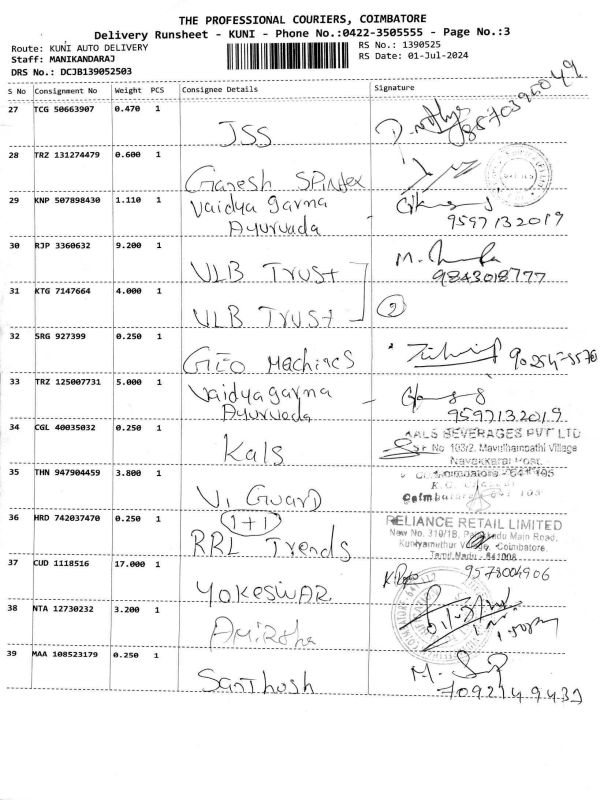 THE PROFESSIONAL COURIERS, COIMBATORE
Delivery Runsheet - KUNI - Phone No.:0422-3505555 - Page No.:3
Route: KUNI AUTO DELIVERY
RS No.: 1390525
Staff: MANIKANDARAJ
RS Date: 01-Jul-2024
DRS No.: DCJB139052503
S No Consignment No Weight PCS Consignee Details Signature
27 TCG 50663907 0.470 1
JSS
8570395049
28 TRZ 131274479 0.600 1
Ganesh Spintex
29 KNP 507898430 1.110 1
Vaidya garma
Ayurvada
9597132019
30 RJP 3360632 9.200 1
VLB Trust
M.
9843018777
31 KTG 7147664 4.000 1
VLB Trust
2
32 SRG 927399 0.250 1
GEO Machines
33 TRZ 125007731 5.000 1
Vaidyagarma
Ayurvada
9597132019
34 CGL 40035032 0.250 1
Kals
KALS BEVERAGES PVT LTD
SF No 103/2, Mavuthampathi Village
Navakkarai Post,
Coimbatore - 641 105
35 THN 947904459 3.800 1
V. Guard
Coimbatore
36 HRD 742037470 0.250 1
1+1
RRL Trends
RELIANCE RETAIL LIMITED
New No. 310/1B, Main Road,
Kuniyamuthur Village, Coimbatore,
Tamil Nadu - 641008
37 CUD 1118516 17.000 1
YOKESWAR
9578004906
38 NTA 12730232 3.200 1
39 MAA 108523179 0.250 1
Santhosh
M.
7092149433